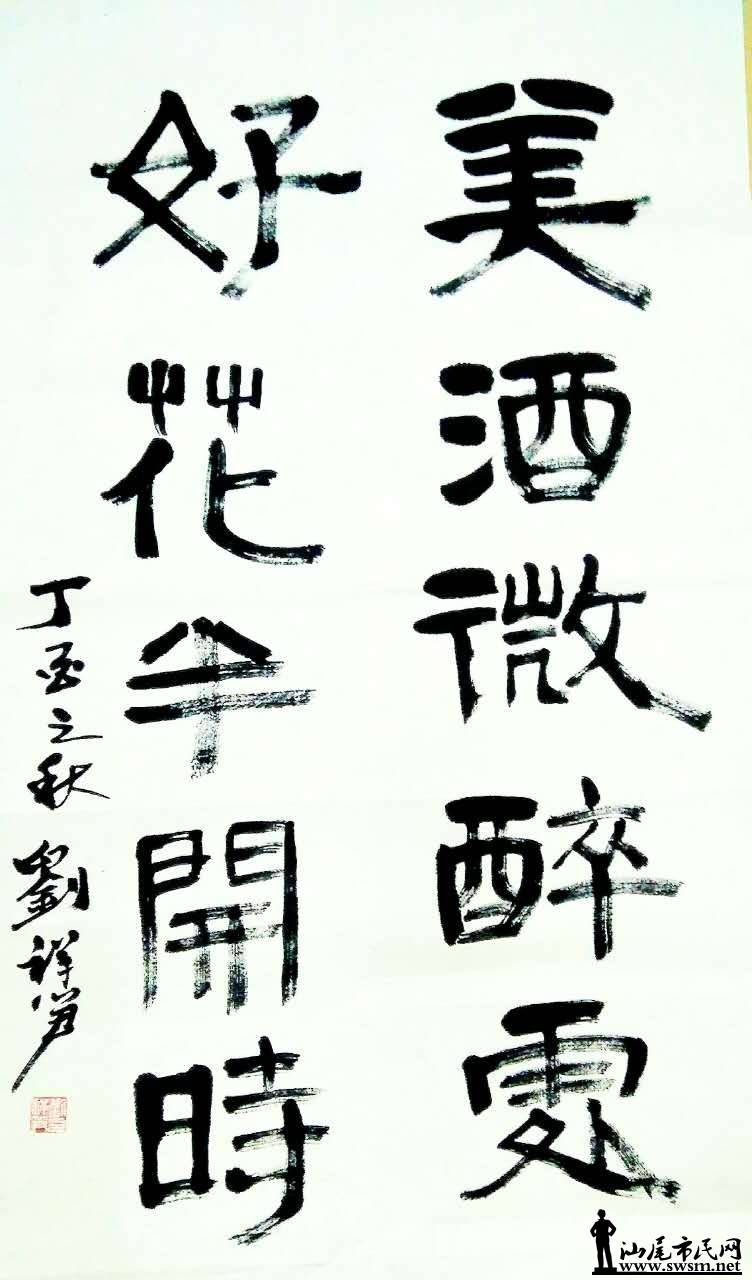 美酒微醉處
好花半開時
丁酉之秋 劉祥
汕尾市民网
www.swsm.net